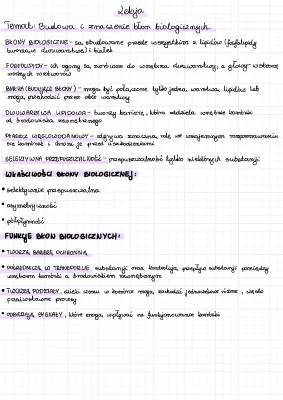 Lekcja
Temat: Budowa i znaczenie błon biologicznych.
BŁONY BIOLOGICZNE - są zbudowane przede wszystkim z lipidów (fosfolipidy
tworzące dwuwarstwę) i białek
FOSFOLIPIDY - ich ogony są zwrócone do wnętrza dwuwarstwy, a głowy
BIAŁKA (BUDUJĄCE BŁONY) - mogą być połączone tylko jedną warstwą lipidów lub
mogą przechodzić przez obie warstwy
DWUWARSTWA LIPIDOWA - tworzy barierę, która oddziela wnętrze komórki
od środowiska zewnętrznego
PŁASZCZ WĘGLOWODANOWY - odgrywa znaczną rolę we wzajemnym rozpoznawaniu
się komórek i chroni je przed uszkodzeniami
SELEKTYWNA PRZEPUSZCZALNOŚĆ - przepuszczalność tylko niektórych substancji
WŁAŚCIWOŚCI BŁONY BIOLOGICZNEJ:
• selektywnie przepuszczalna
• asymetryczność
• półpłynność
FUNKCJE BŁON BIOLOGICZNYCH:
• TWORZĄ BARIERĘ OCHRONNĄ
• POŚREDNICZĄ W TRANSPORCIE substancji oraz kontrolują przepływ substancji pomiędzy
wnętrzem komórki a środowiskiem zewnętrznym
• TWORZĄ PODZIAŁY, dzięki czemu w komórce mogą zachodzić jednocześnie różne, często
przeciwstawne procesy
• ODBIERAJĄ SYGNAŁY, które mogą wpływać na funkcjonowanie komórki